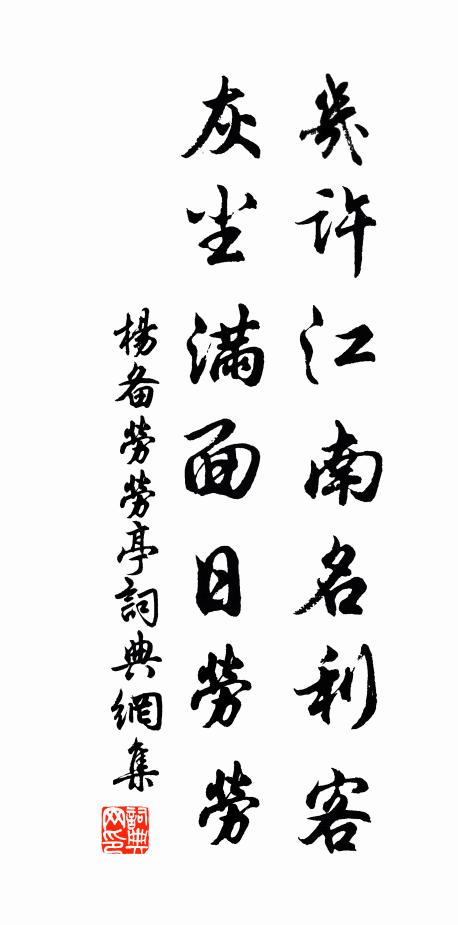 幾許江南名利客
灰尘滿面日勞勞
楊备勞勞亭詞典網集
詞典网印